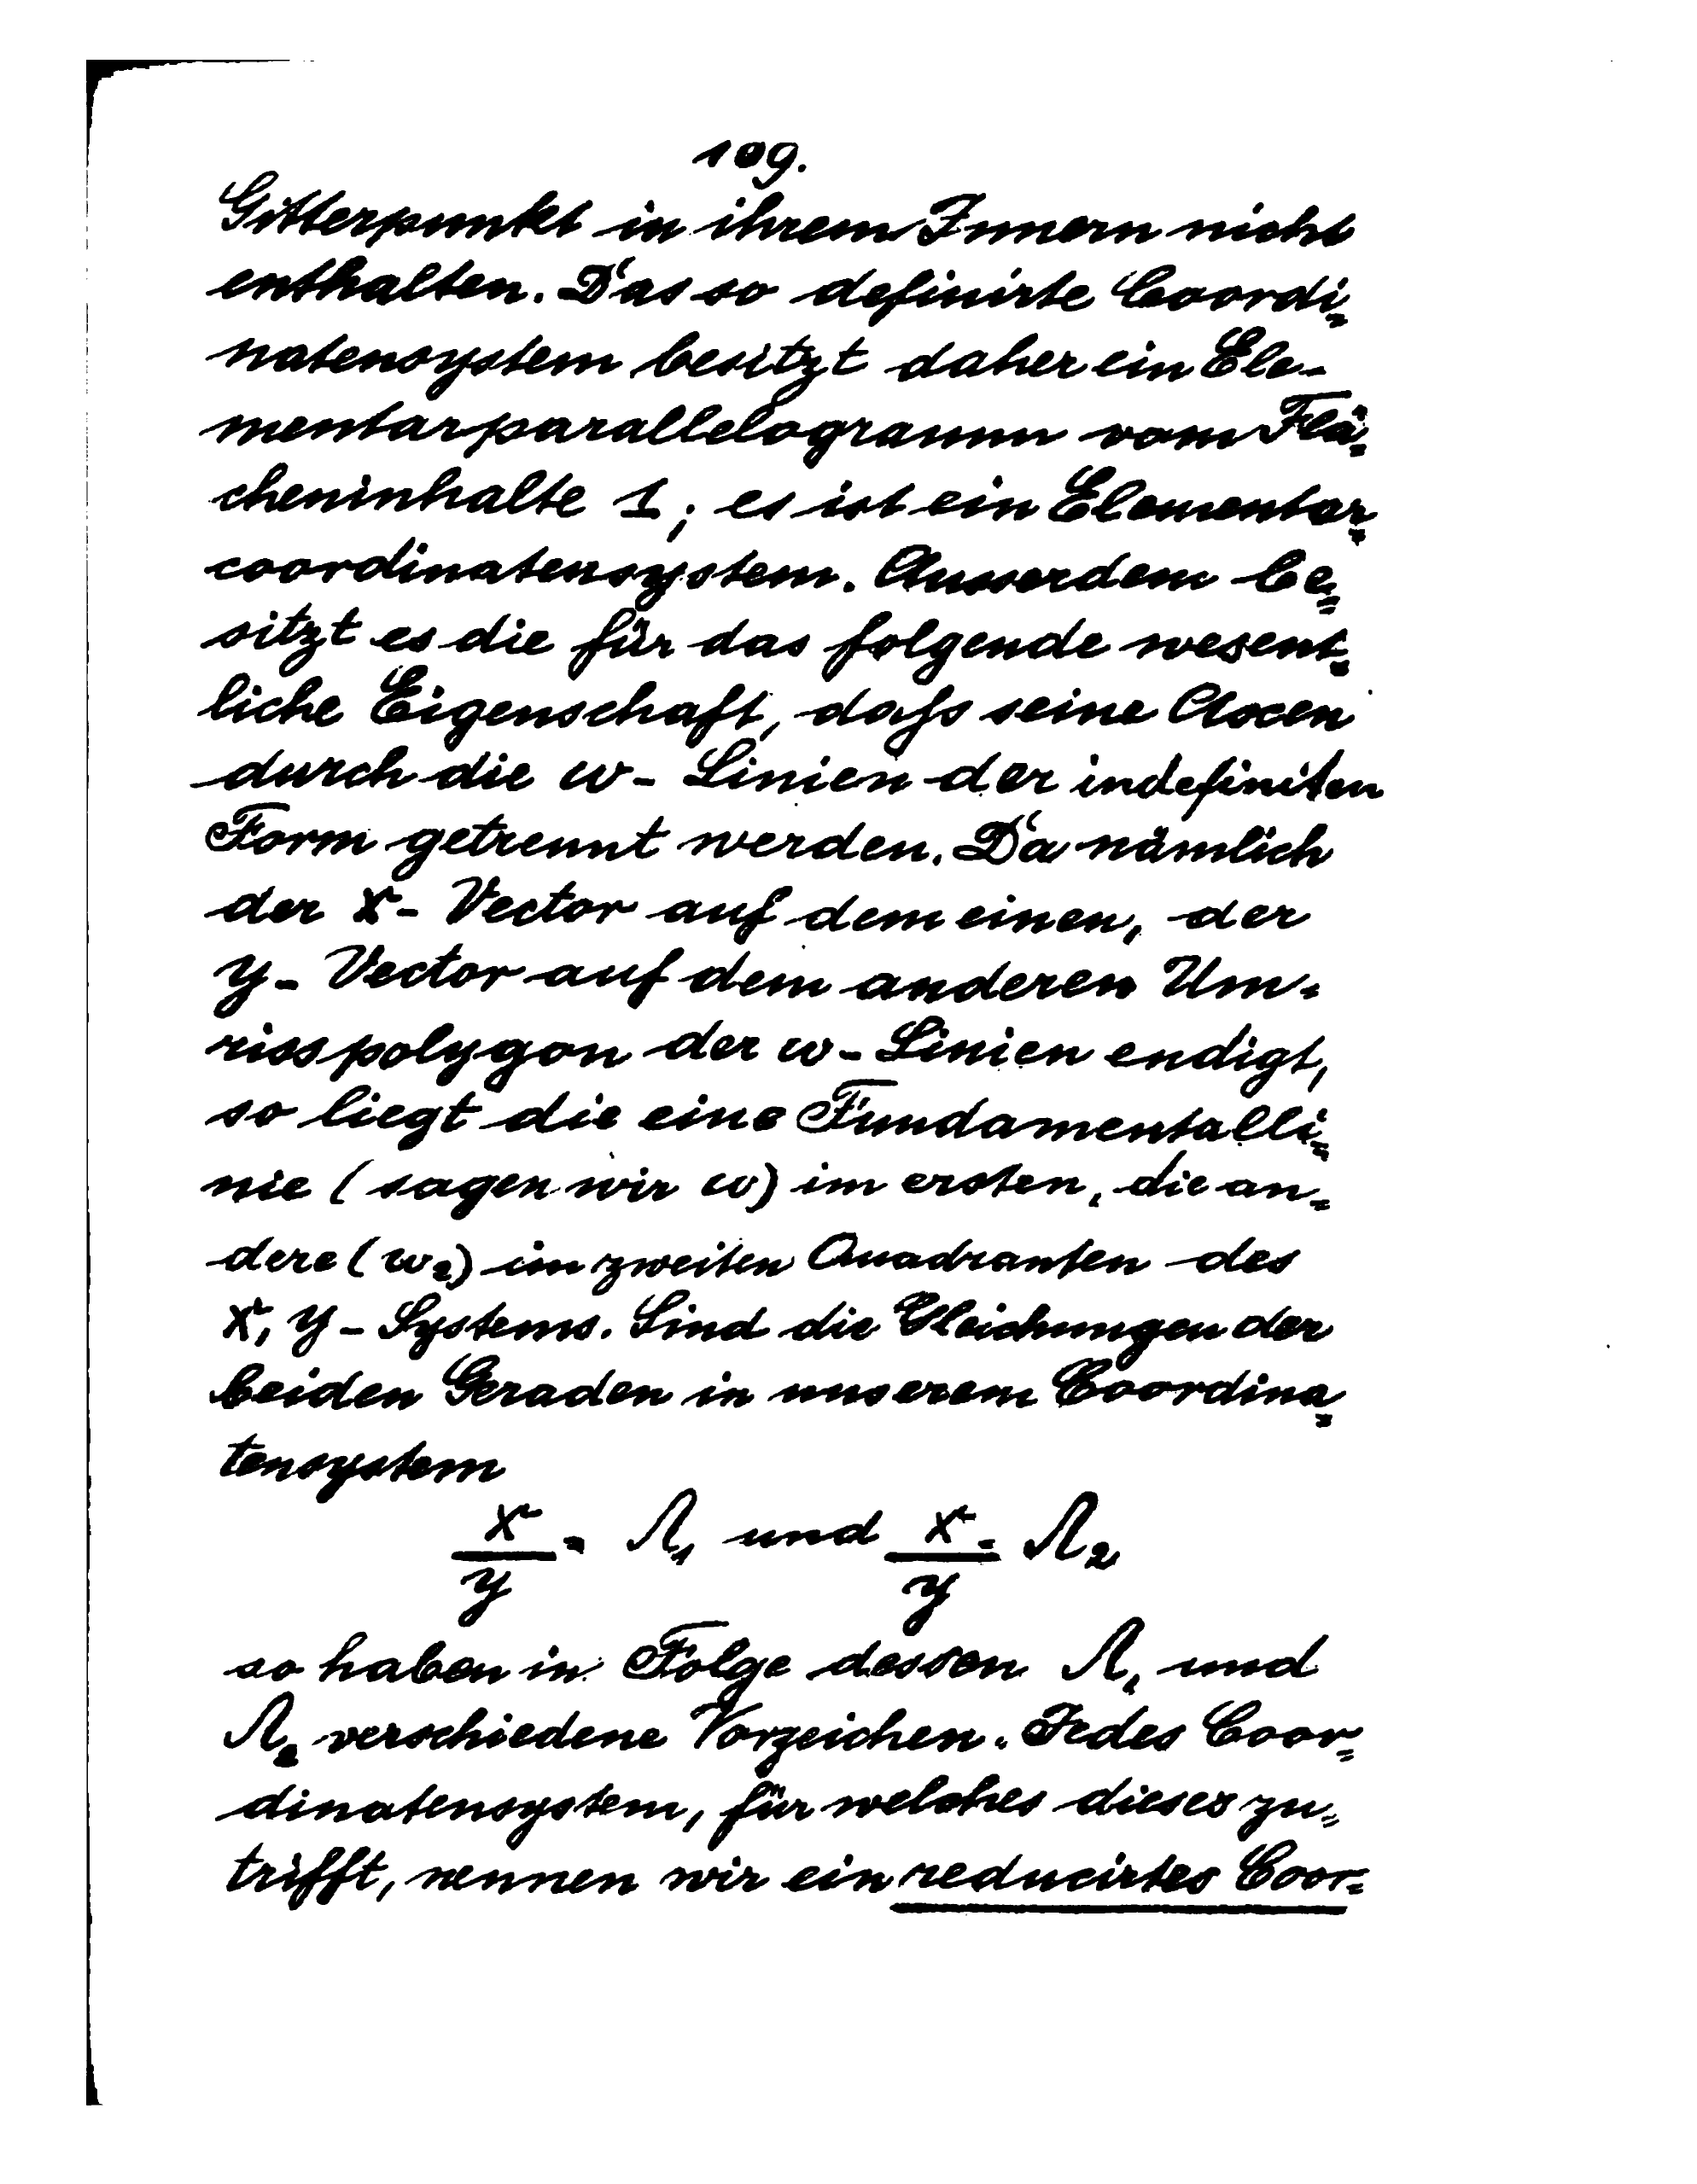 109.
Gitterpunkt in ihrem Innern nicht
enthalten. Das so definirte Coordi=
natensystem besitzt daher ein Ele-
mentarparallelogramm vom Flä=
cheninhalte 1; es ist ein Elementar=
coordinatensystem. Ausserdem be=
sitzt es die für das folgende wesent=
liche Eigenschaft, dafs seine Axen
durch die w- Linien der indefiniten
Form getrennt werden. Da nämlich
der X- Vector auf dem einen, der
Y- Vector auf dem anderen Um=
risspolygon der w- Linien endigt,
so liegt die eine Fundamentalli=
nie (sagen wir w) im ersten, die an=
dere (w₂) im zweiten Quadranten des
X, Y- Systems. Sind die Gleichungen der
beiden Geraden in unserem Coordina=
tensystem
x/y = Λ₁ und x/y = Λ₂
so haben in Folge dessen Λ₁ und
Λ₂ verschiedene Vorzeichen. Jedes Coor=
dinatensystem, für welches dieses zu=
trifft, nennen wir ein reducirtes Coor=